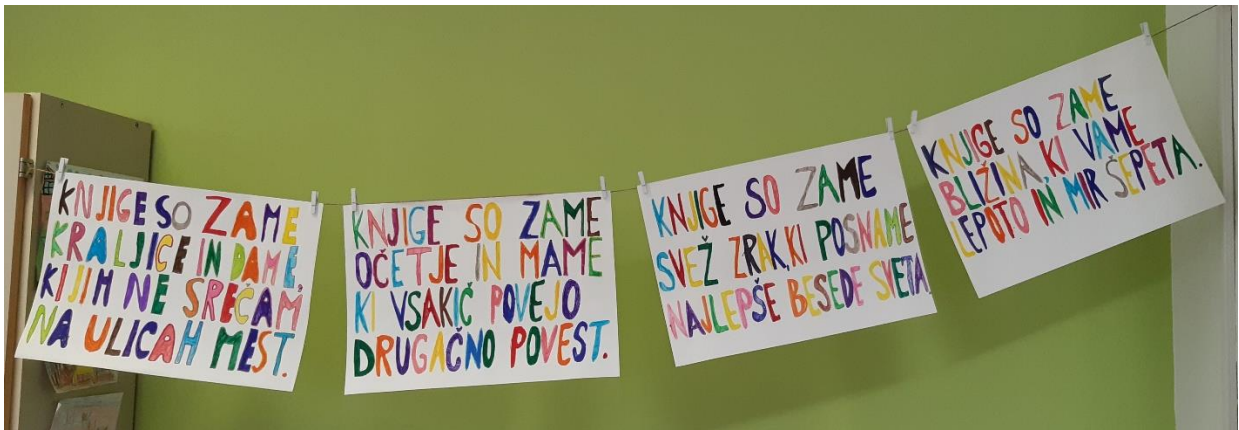 KNJIGE SO ZAME
KRALJICE IN DAME,
KI JIH NE SREČAM
NA ULICAH MEST.
KNJIGE SO ZAME
OČETJE IN MAME
KI VSAKIČ POVEJO
DRUGAČNO POVEST.
KNJIGE SO ZAME
SVEŽ ZRAK, KI POSNAME
NAJLEPŠE BESEDE SVETA.
KNJIGE SO ZAME
BLIŽINA, KI VAME
LEPOTO IN MIR ŠEPETA.